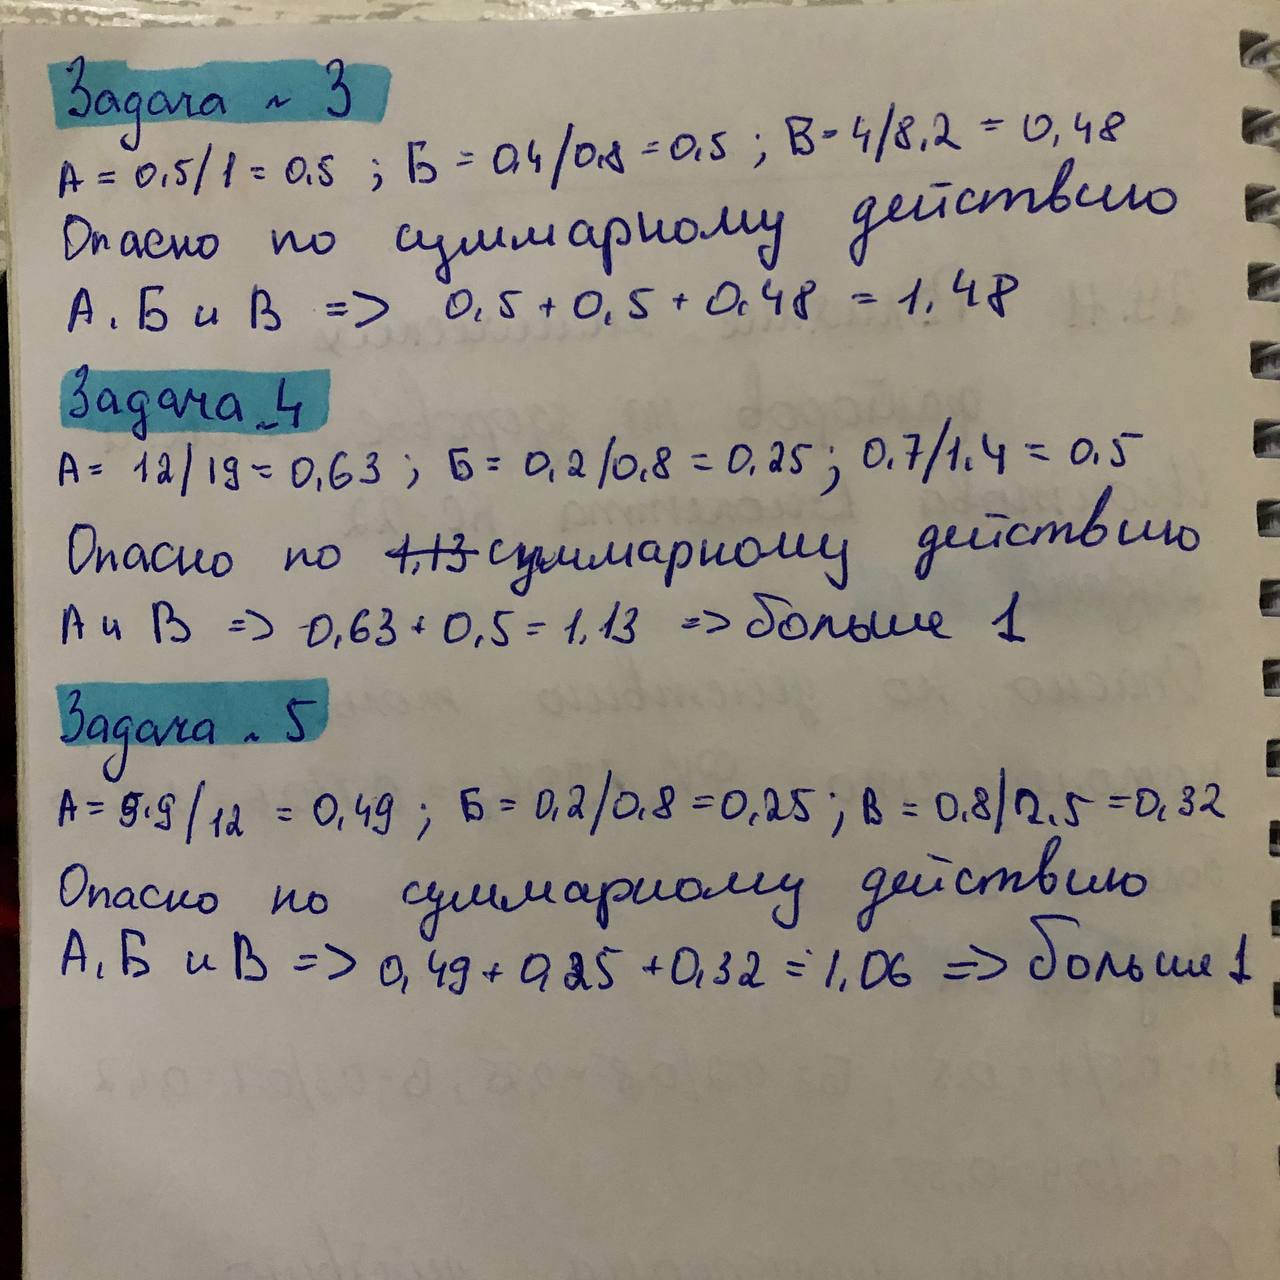 Задача ~ 3
А = 0.5/1 = 0.5 ; Б = 0.4/0.8 = 0.5 ; В = 4/8.2 = 0,48
Опасно по суммарному действию
А, Б и В => 0,5 + 0,5 + 0.48 = 1.48
Задача ~ 4
А = 12/19 = 0,63 ; Б = 0,2/0,8 = 0,25 ; 0.7/1.4 = 0.5
Опасно по 1,13 суммарному действию
А и В => 0,63 + 0,5 = 1.13 => больше 1
Задача ~ 5
А = 5.9/12 = 0,49 ; Б = 0,2/0.8 = 0,25 ; В = 0.8/2.5 = 0,32
Опасно по суммарному действию
А, Б и В => 0,49 + 0,25 + 0,32 = 1,06 => больше 1